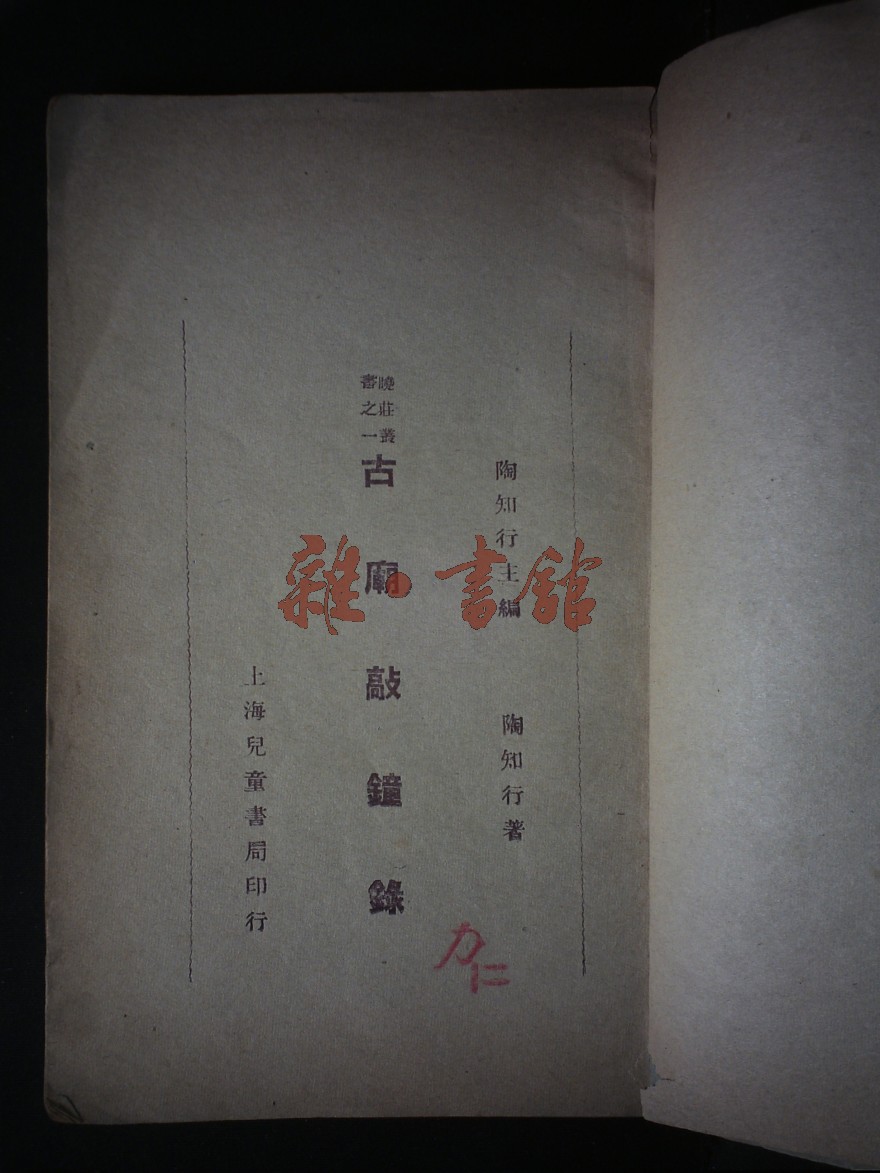 陶知行主編　陶知行著
曉莊叢
書之一
古廟敲鐘錄
上海兒童書局印行
力仁
雜·書館